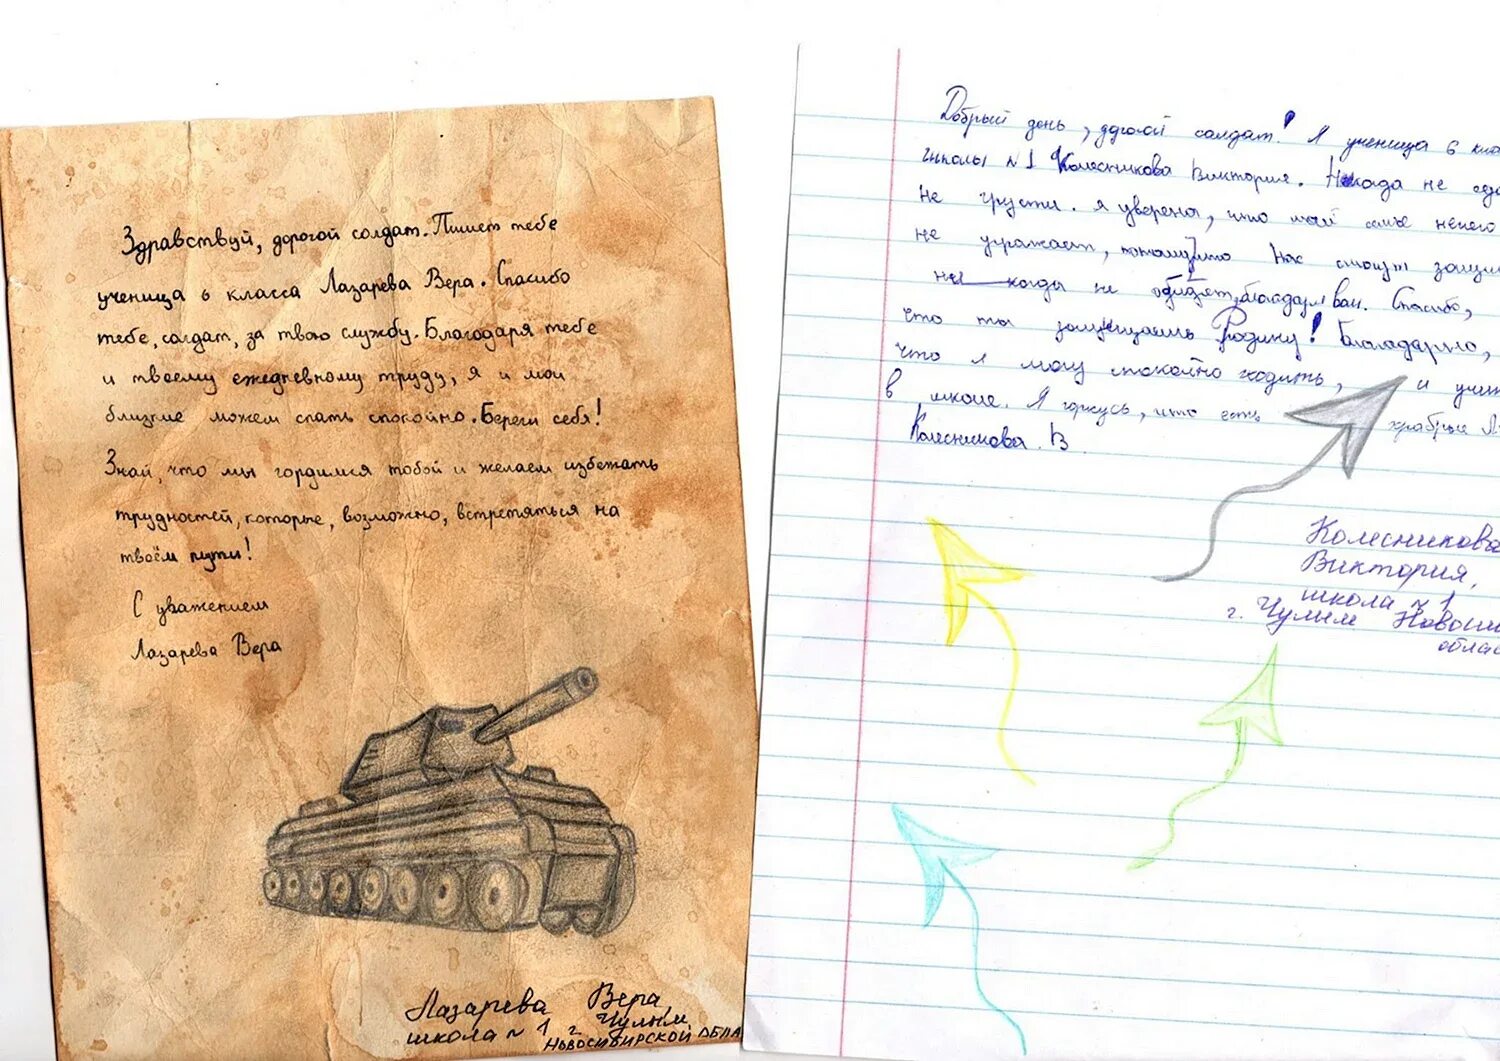 Здравствуй, дорогой солдат. Пишет тебе
ученица 6 класса Лазарева Вера. Спасибо
тебе, солдат, за твою службу. Благодаря тебе
и твоему ежедневному труду, я и мои
близкие можем спать спокойно. Береги себя!
Знай, что мы гордимся тобой и желаем избежать
трудностей, которые, возможно, встретяться на
твоём пути!
С уважением
Лазарева Вера
Лазарева Вера
школа №1 г. Чулым,
Новосибирской обла
Добрый день, дорогой солдат! Я ученица 6 кла
школы №1 Колесникова Виктория. Никогда не
не грусти. Я уверена, что моей семье нечего
не угражает, потому что Нас
ни когда не обидят, благодаря вам. Спасибо,
что ты защищаешь Родину! Благодарю,
что я могу спокойно ходить, и учит
в школе. Я горжусь, что есть храбрые
Колесникова В
Колесникова
Виктория,
школа №1
г. Чулым Новоси
облас